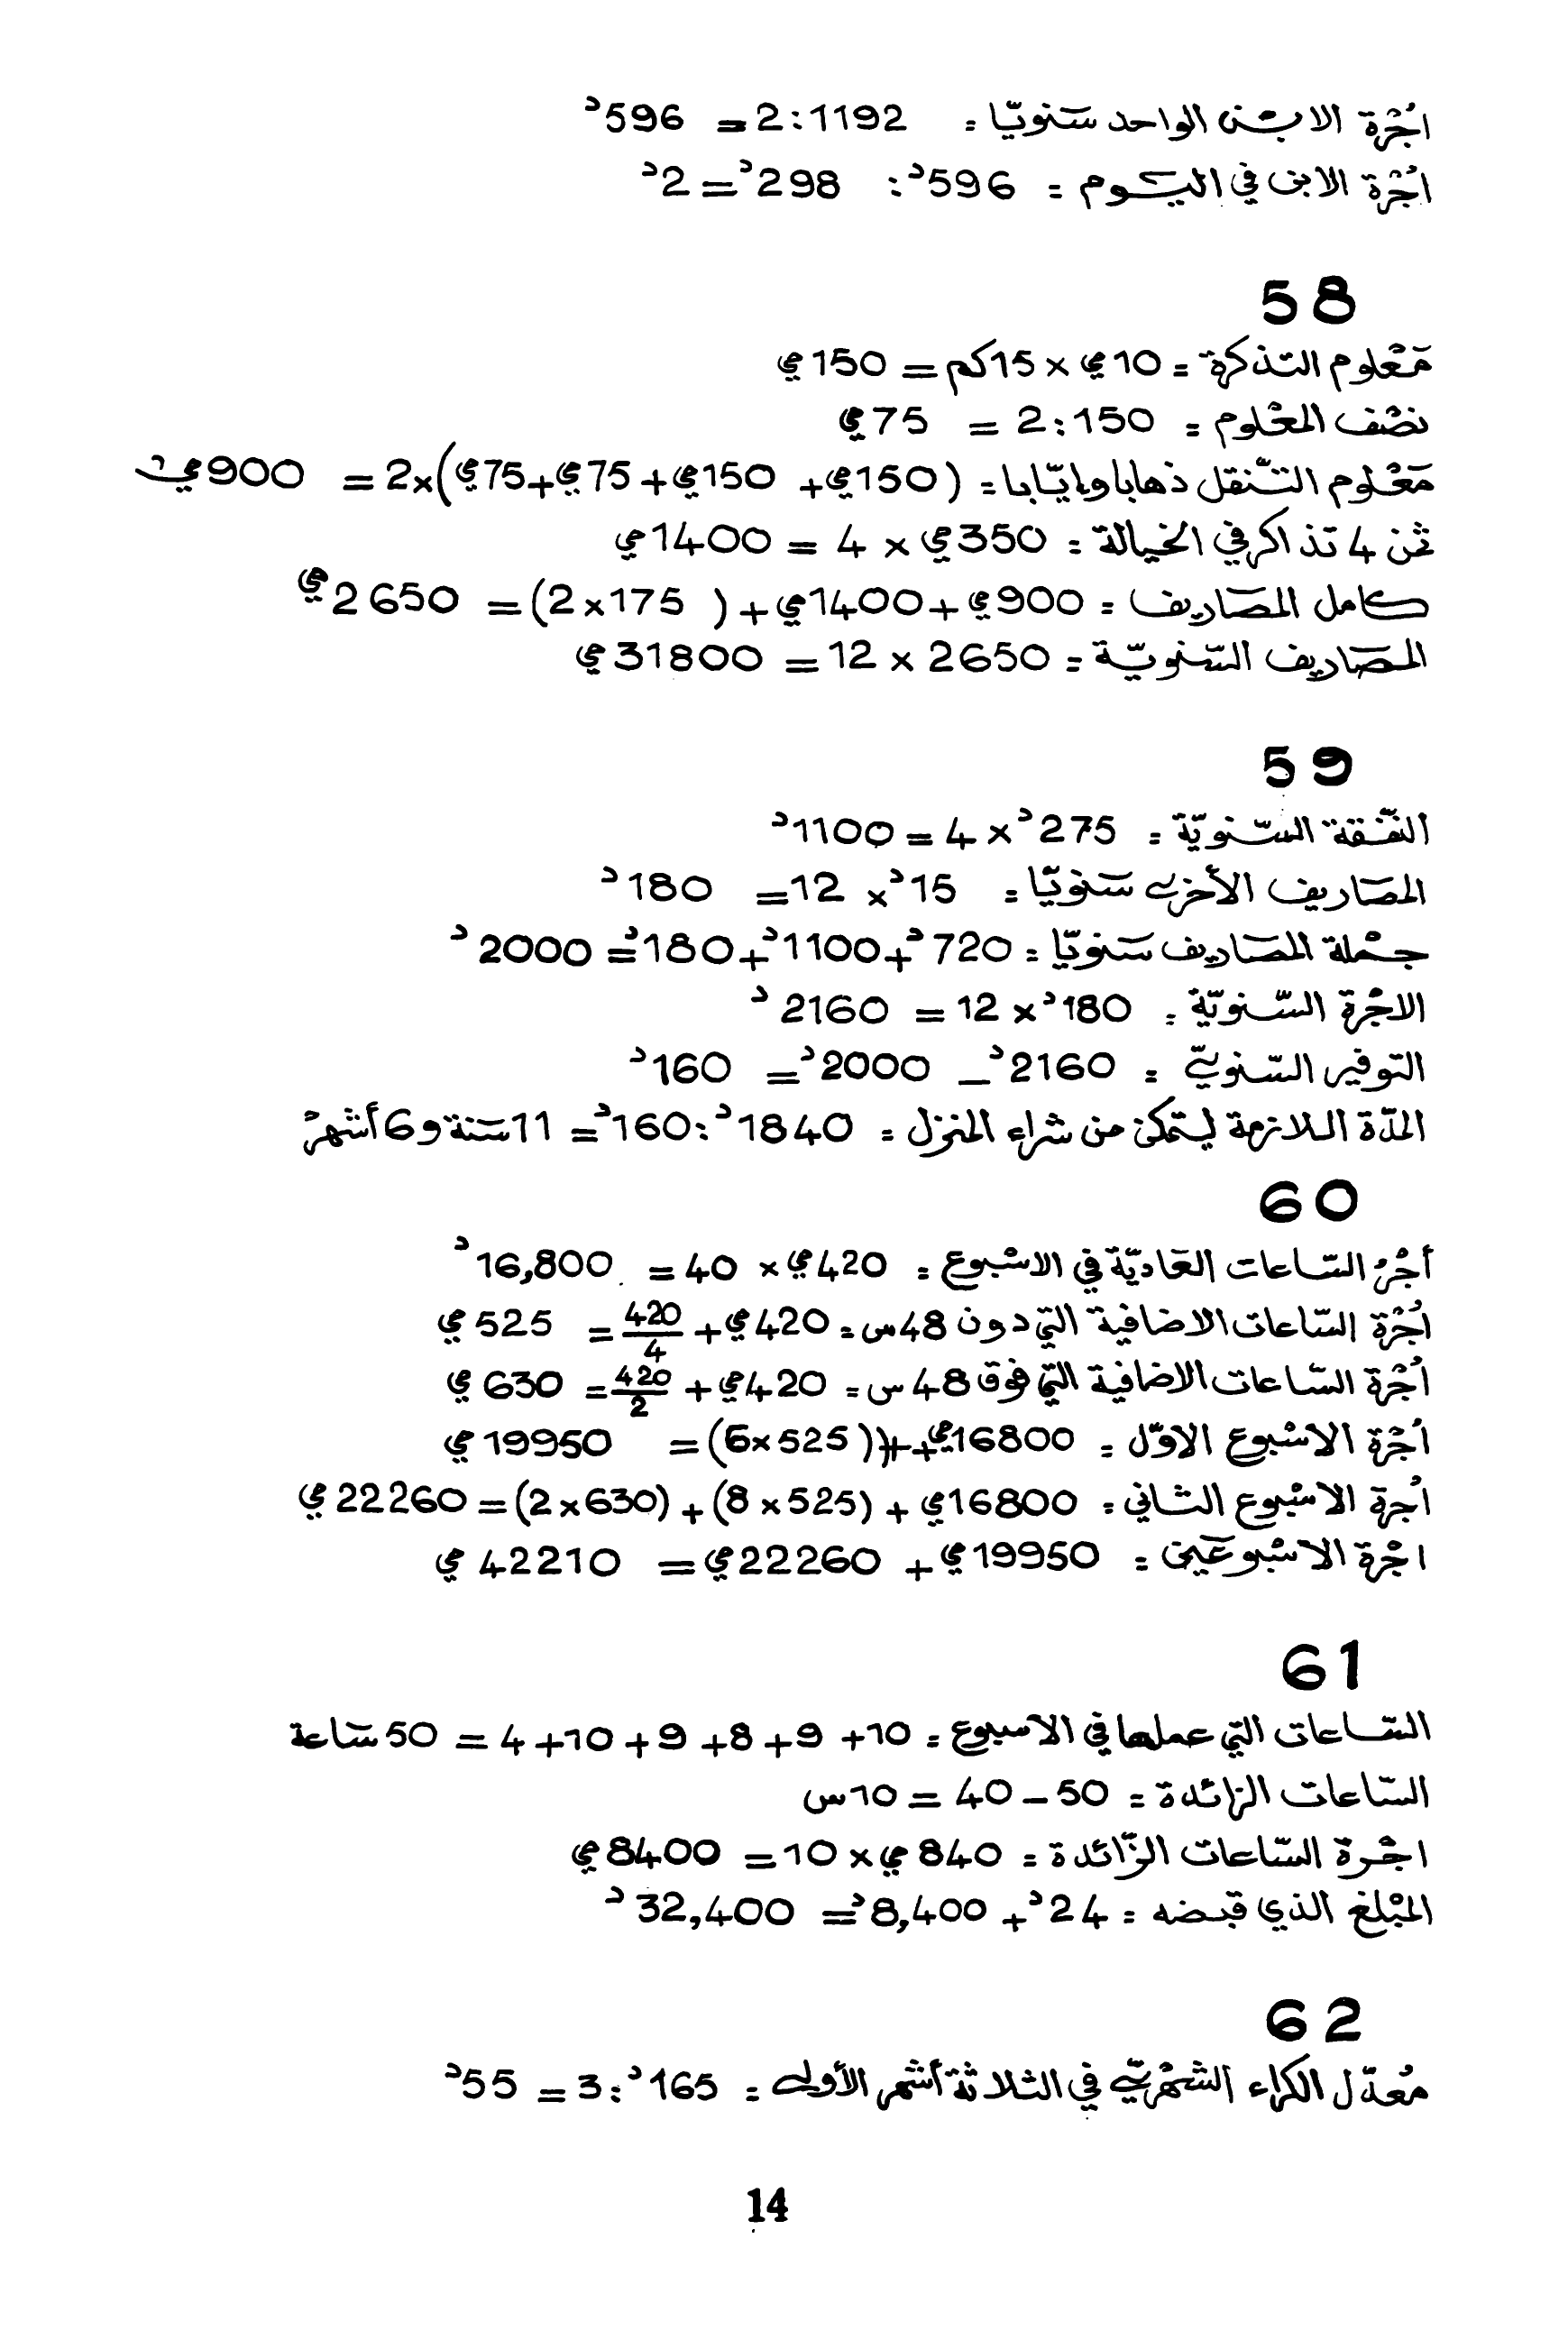 اُجْرَة الابن الواحد سَنويّا = 1192 : 2 = 596د
اُجْرَة الابن في اليوم = 596د : 298 = 2د
58
مَعْلوم التذكرة = 10ي × 15كم = 150ي
نصْف المعْلوم = 150 : 2 = 75ي
مَعْلوم التّنقل ذهابا وايّابا = (150ي + 150ي + 75ي + 75ي) × 2 = 900ي
ثمن 4 تذاكر في الخيالة = 350ي × 4 = 1400ي
كامل المصَاريف = 900ي + 1400ي + (175 × 2) = 2650ي
المصَاريف السّنويّة = 2650 × 12 = 31800ي
59
النّفَقة السّنويّة = 275د × 4 = 1100د
المصَاريف الأخرى سَنويّا = 15د × 12 = 180د
جمْلة المصَاريف سَنويّا = 720د + 1100د + 180د = 2000د
الاجْرَة السّنويّة = 180د × 12 = 2160د
التوفير السّنويّ = 2160د – 2000د = 160د
المدّة اللازمة ليتمكن من شراء المنزل = 1840د : 160د = 11 سَنة و 6 أشهرْ
60
أجْرُ السّاعات العَاديّة في الاسْبوع = 420ي × 40 = 16,800د
اُجْرَة السّاعات الاضافية التي دون 48س = 420ي + 420/4 = 525ي
اُجْرَة السّاعات الاضافية التي فوق 48س = 420ي + 420/2 = 630ي
اُجْرَة الاسْبوع الاوّل = 16800ي + ((525×6) = 19950ي
اُجرة الاسْبوع الثاني = 16800ي + (525 × 8) + (630×2) = 22260ي
اجْرَة الاسْبوعَين = 19950ي + 22260ي = 42210ي
61
السّاعات التي عملها في الاسبوع = 10 + 9 + 8 + 9 + 10 + 4 = 50 سَاعة
السّاعات الزائدة = 50 – 40 = 10س
اجْرة السّاعات الزّائدة = 840ي × 10 = 8400ي
المبْلغ الذي قبضه = 24د + 8,400د = 32,400د
62
مُعدّل الكراء الشهْريّ في الثلاثة أشهر الأولى = 165د : 3 = 55د
14